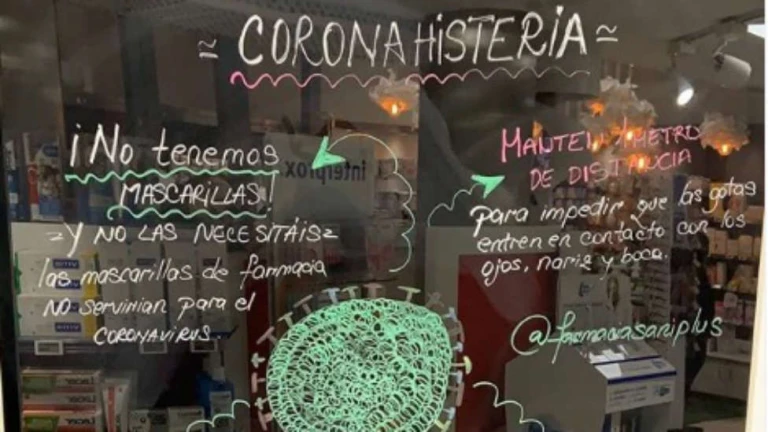 ≈ CORONAHISTERIA ≈
¡No tenemos
MASCARILLAS!
=Y NO LAS NECESITÁIS=
las mascarillas de farmacia
NO servirían para el
CORONAVIRUS.
MANTEN 1 METRO
DE DISTANCIA
para impedir que las gotas
entren en contacto con los
ojos, nariz y boca.
@farmaciasaniplus
interprox